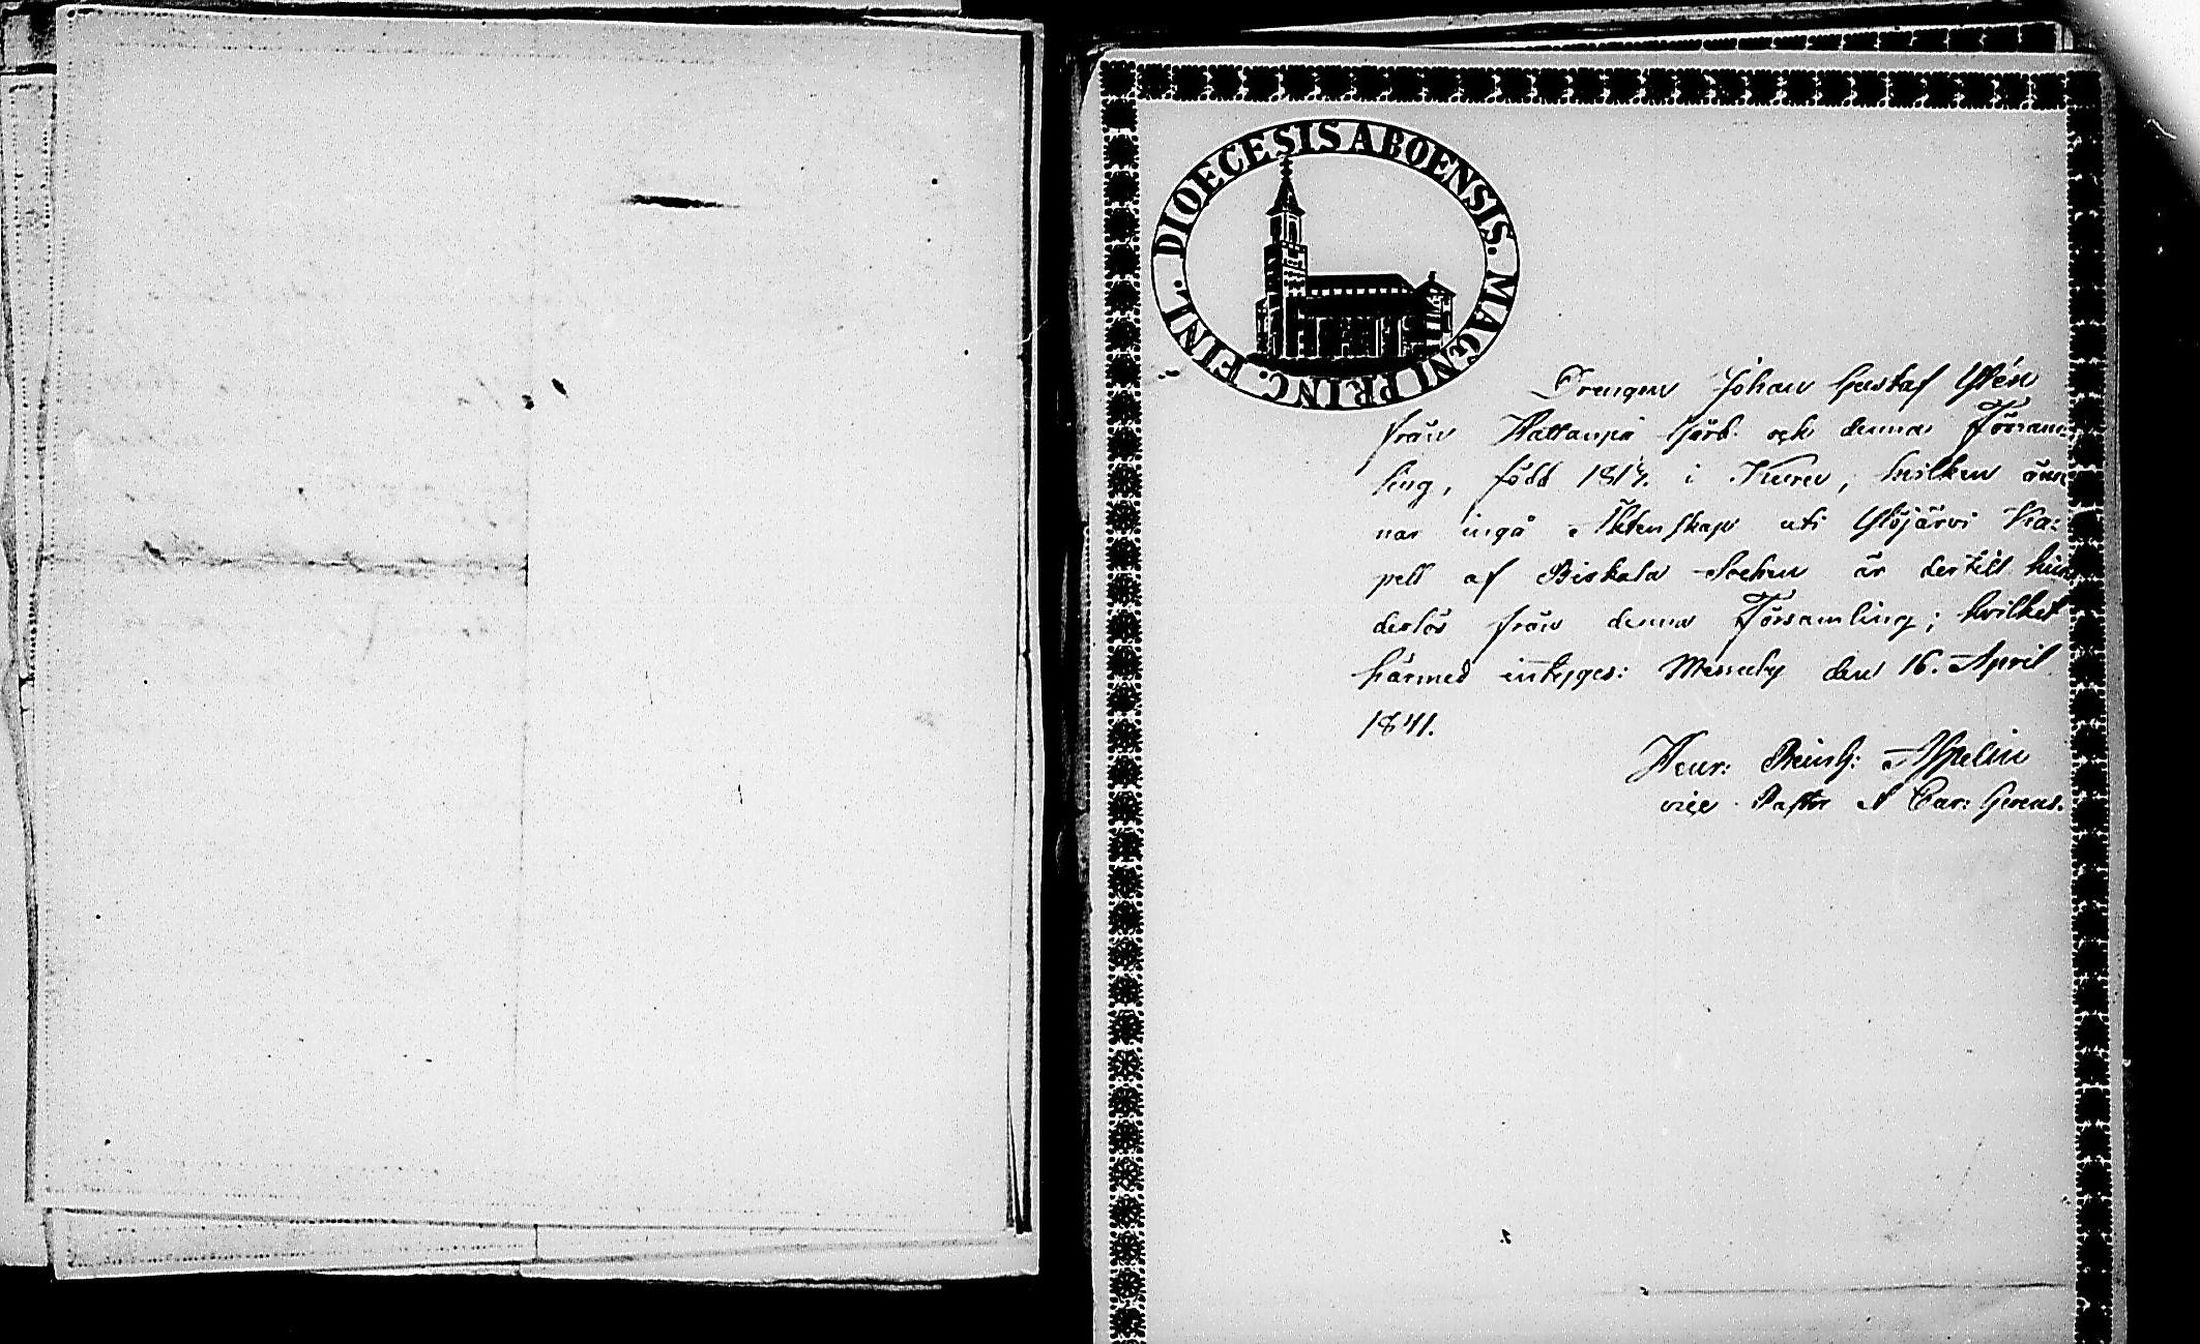 DIOECESIS ABOENSIS. MAGNI PRINC. FINL.
Drengen Johan Gustaf Ylén
från Hattanpä Gård och denna Försam-
ling, född 1817. i Kuru, hvilken äm-
nar ingå Äktenskap uti Ylöjärvi Ka-
pell af Birkala Sochn är dertill hin-
derlös från denna Församling; hvilket
härmed intyges: Messuby den 16. April
1841.
Henr: Reinh: Aspelin
vice Pastor Cur: Gerens.